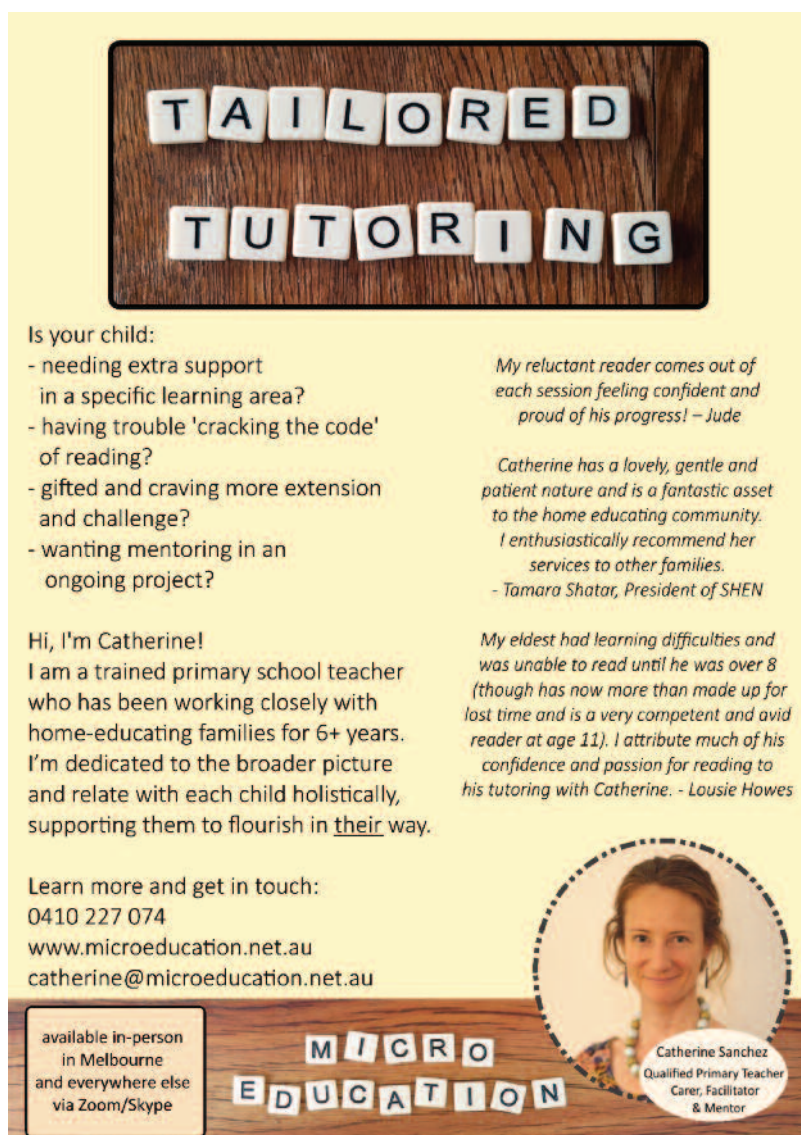 TAILORED
TUTORING
Is your child:
- needing extra support
in a specific learning area?
- having trouble 'cracking the code'
of reading?
- gifted and craving more extension
and challenge?
- wanting mentoring in an
ongoing project?
Hi, I'm Catherine!
I am a trained primary school teacher
who has been working closely with
home-educating families for 6+ years.
I'm dedicated to the broader picture
and relate with each child holistically,
supporting them to flourish in their way.
Learn more and get in touch:
0410 227 074
www.microeducation.net.au
catherine@microeducation.net.au
My reluctant reader comes out of
each session feeling confident and
proud of his progress! – Jude
Catherine has a lovely, gentle and
patient nature and is a fantastic asset
to the home educating community.
I enthusiastically recommend her
services to other families.
- Tamara Shatar, President of SHEN
My eldest had learning difficulties and
was unable to read until he was over 8
(though has now more than made up for
lost time and is a very competent and avid
reader at age 11). I attribute much of his
confidence and passion for reading to
his tutoring with Catherine. - Lousie Howes
available in-person
in Melbourne
and everywhere else
via Zoom/Skype
MICRO
EDUCATION
Catherine Sanchez
Qualified Primary Teacher
Carer, Facilitator
& Mentor